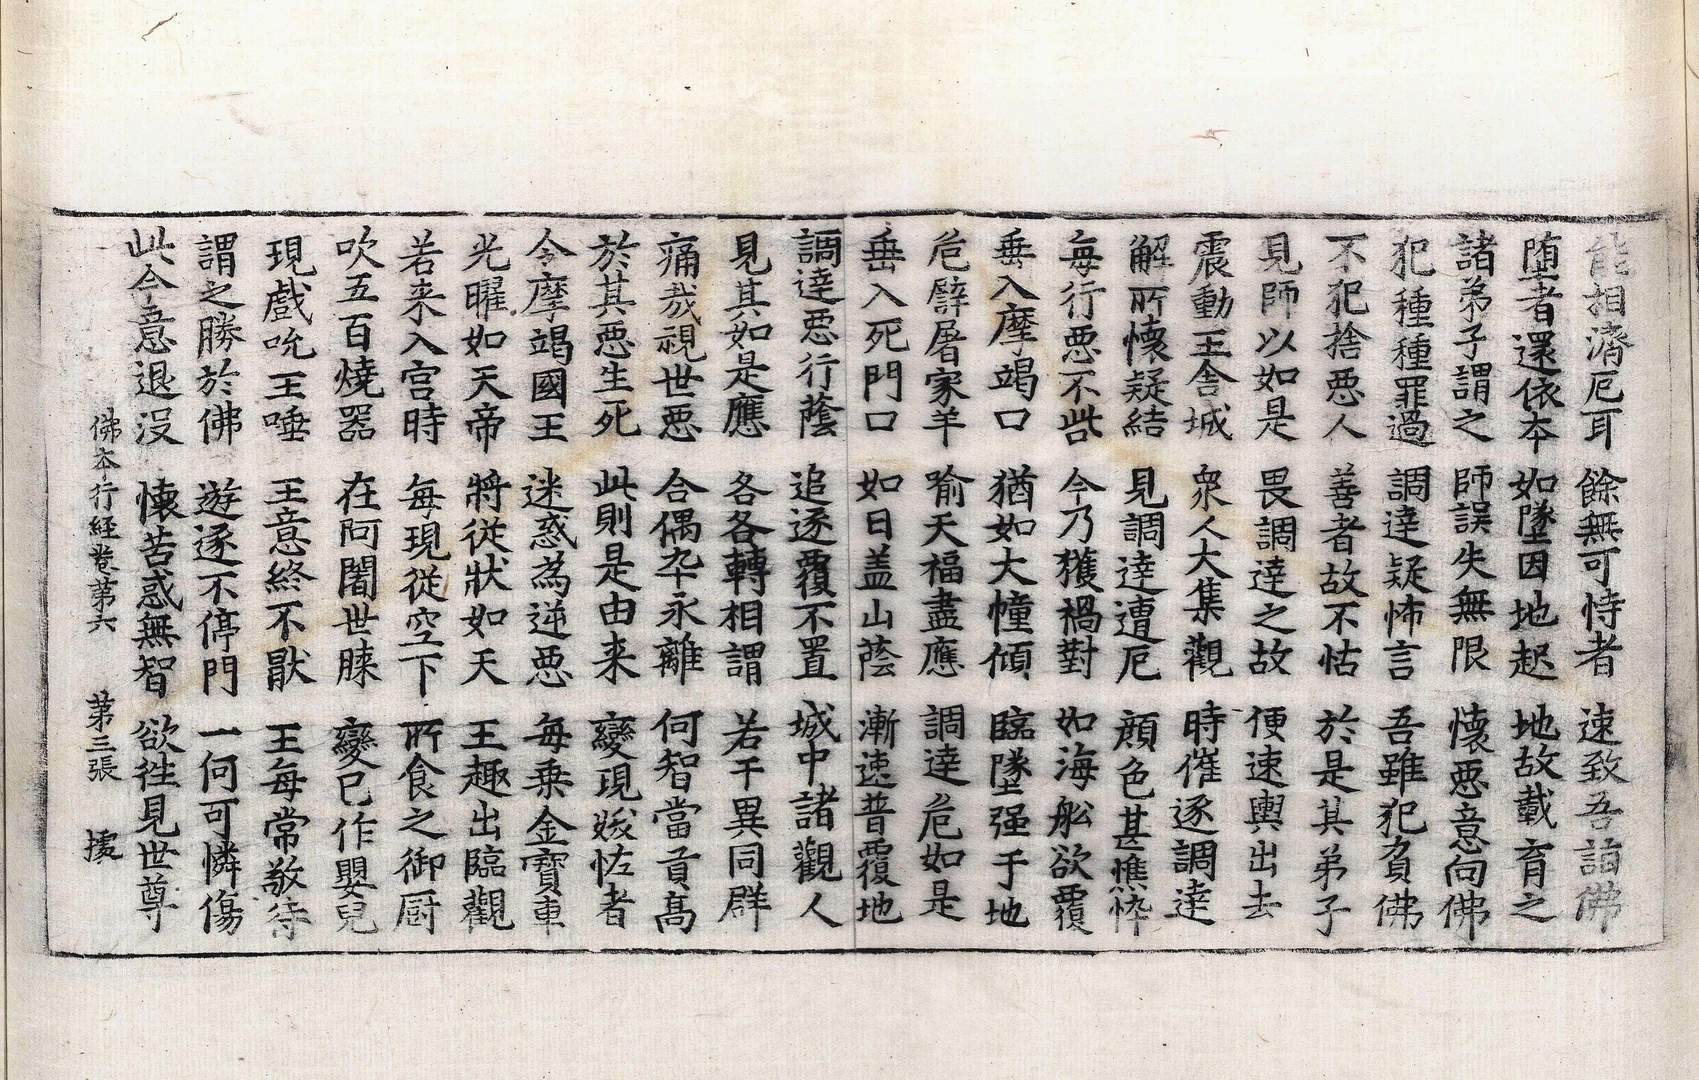 能相濟厄耳 餘無可恃者 速致吾詣佛
墮者還依本 如墜因地起 地故載育之
諸弟子謂之 師誤失無限 懷惡意向佛
犯種種罪過 調達疑怖言 吾雖犯負佛
不犯捨惡人 善者故不怙 於是其弟子
見師以如是 畏調達之故 便速輿出去
震動王舍城 衆人大集觀 時催逐調達
解所懷疑結 見調達遭厄 顔色甚憔悴
每行惡不訾 今乃獲禍對 如海舩欲覆
垂入摩竭口 猶如大幢傾 臨墜强于地
危譬屠家羊 喻天福盡應 調達危如是
垂入死門口 如日盖山蔭 漸速普覆地
調達惡行蔭 追逐覆不置 城中諸觀人
見其如是應 各各轉相謂 若干異同群
痛哉視世惡 合偶卒永離 何智當貢髙
於其惡生死 此則是由来 變現妭恠者
令摩竭國王 迷惑為逆惡 每乗金寳車
光曜如天帝 將從狀如天 王趣出臨觀
若来入宫時 每現從空下 所食之御厨
吹五百燒器 在阿闍世膝 變已作嬰兒
現戲吮王唾 王意終不猒 王每常敬待
謂之勝於佛 遊逐不停門 一何可憐傷
此今意退没 懷苦惑無智 欲徃見世尊
佛本行經卷第六 第三張 㨿